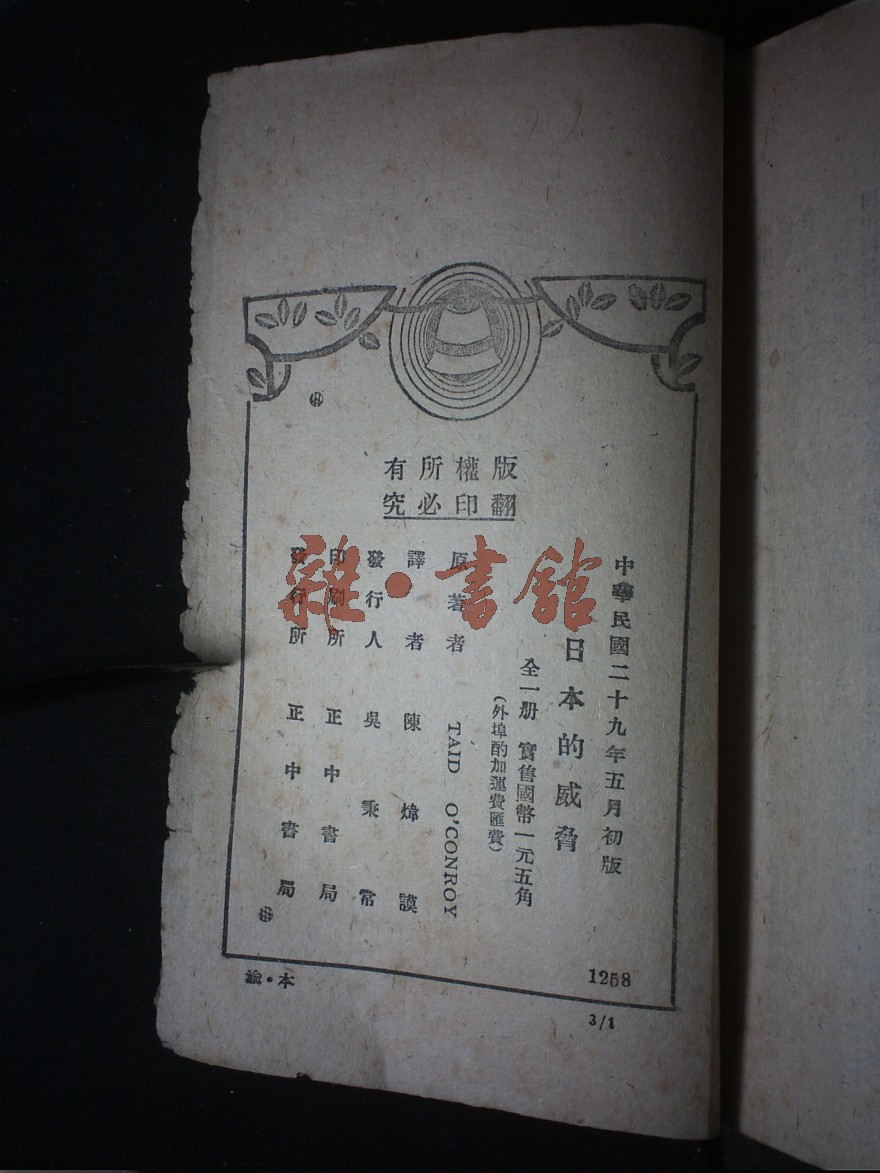 版權所有
翻印必究
中華民國二十九年五月初版
日本的威脅
全一册 實售國幣一元五角
(外埠酌加運費匯費)
原著者 TAID O'CONROY
譯者 陳煒謨
發行人 吳秉常
印刷所 正中書局
發行所 正中書局
1258
3/1
渝·本
雜·書館